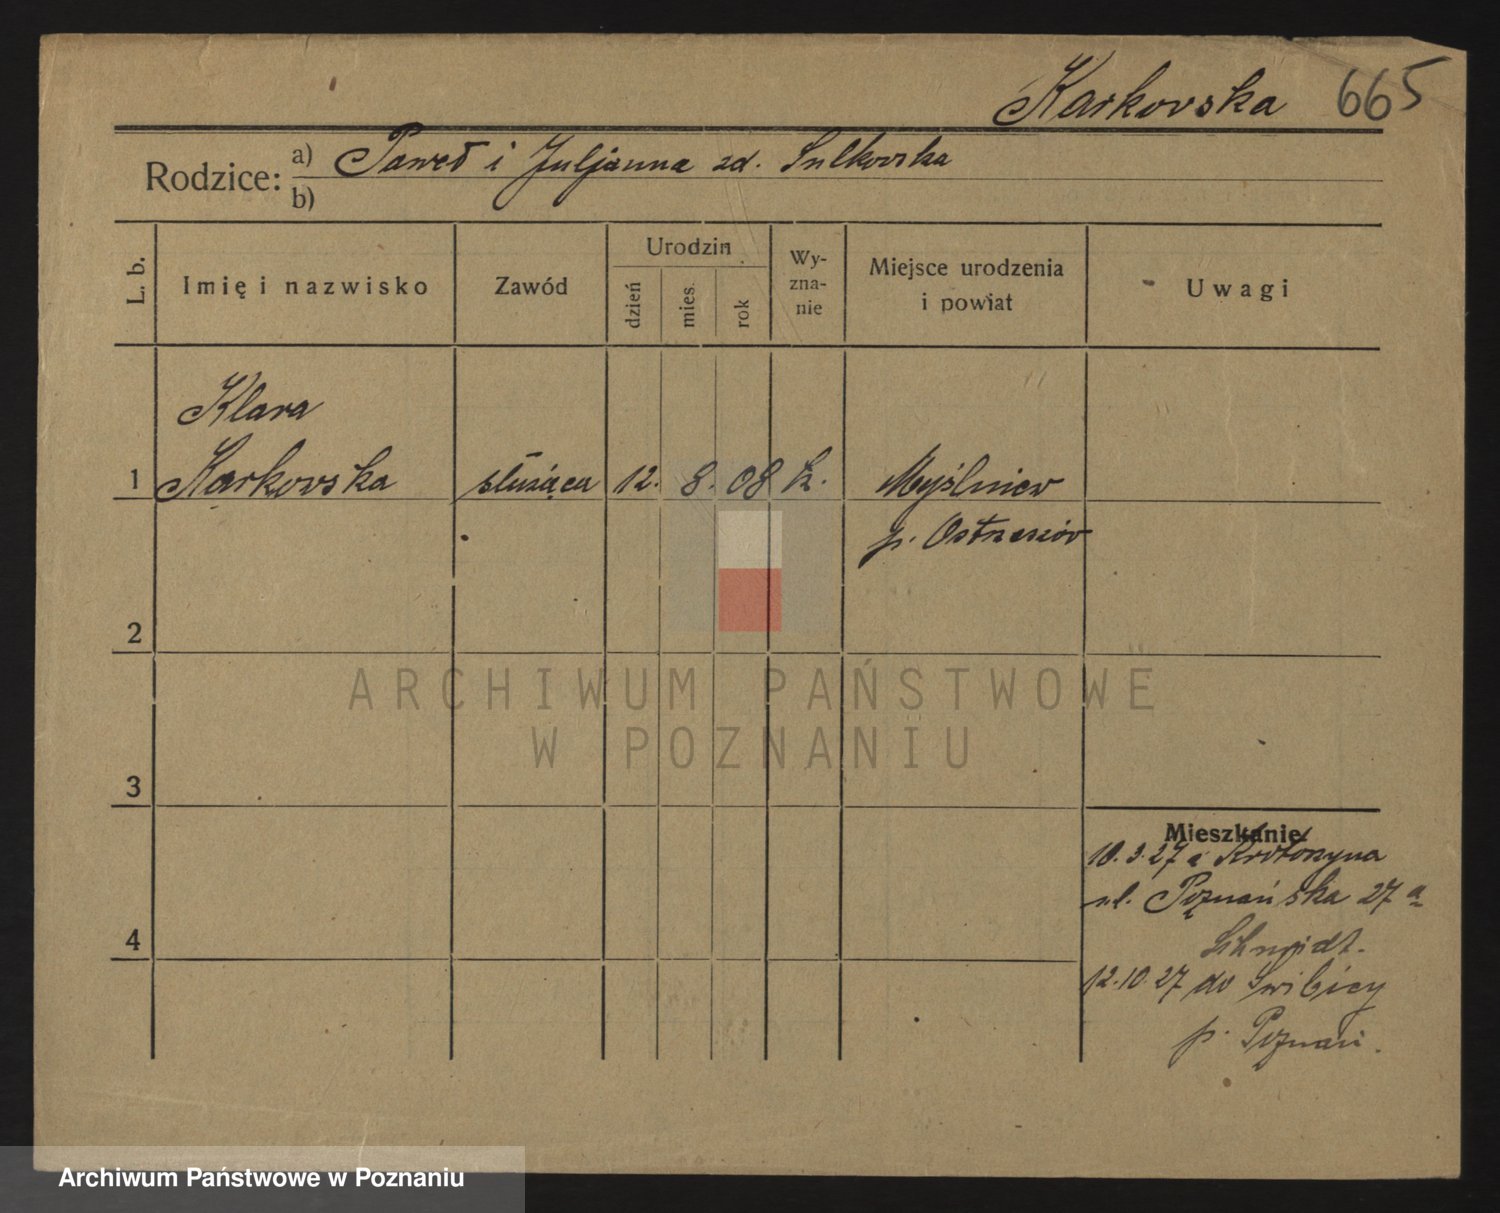 Karkovska 665
Rodzice: a) Paweł i Juljanna zd. Sulkovska
b)
L. b.
Imię i nazwisko
Zawód
Urodzin
dzień
mies.
rok
Wy-
zna-
nie
Miejsce urodzenia
i powiat
Uwagi
Klara
1 Karkovska służąca 12. 8. 08 k. Myśliniew
p. Ostrzeszów
2
ARCHIWUM PAŃSTWOWE
W POZNANIU
3
Mieszkanie
10.3.27 z Krotoszyna
ul. Poznańska 27 a
Schmidt.
4
12.10.27 do
p. Poznań.
Archiwum Państwowe w Poznaniu